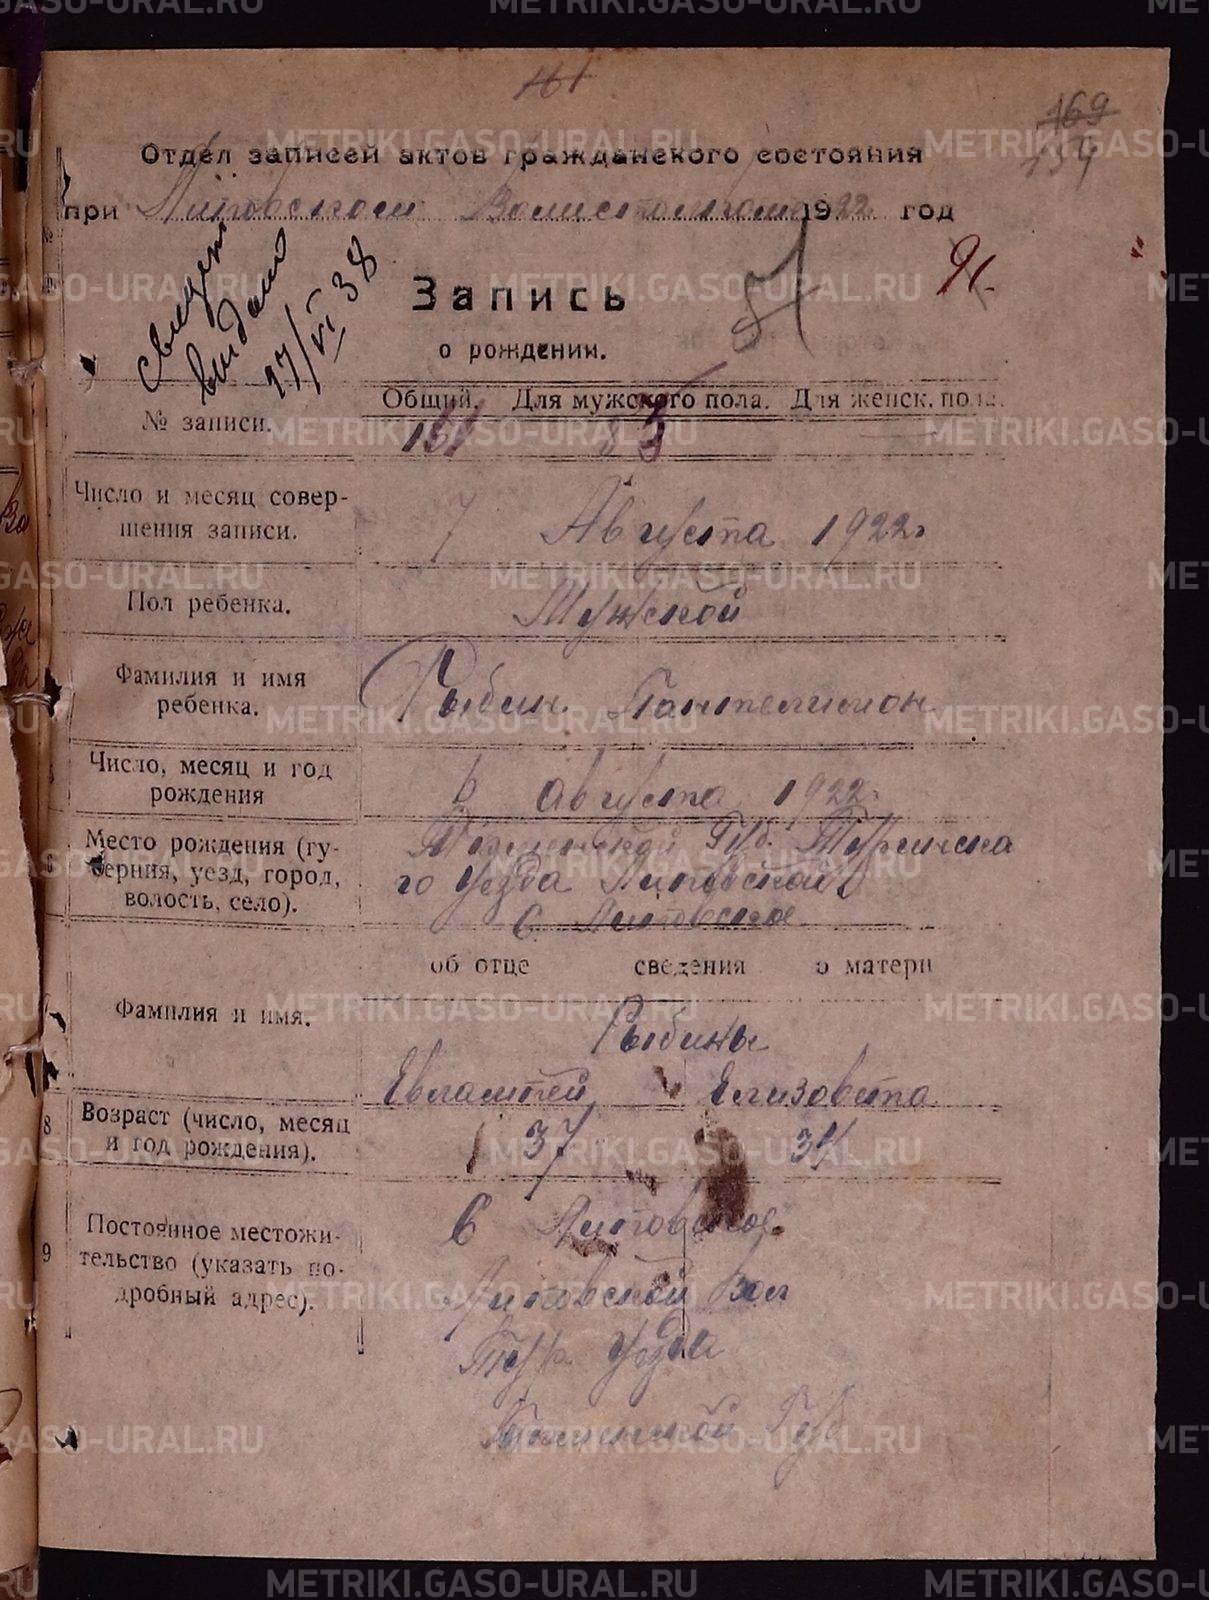 161
169
159
Отдел записей актов гражданского состояния
при Липовском Волисполкоме 1922 год
свидет
выдано
27/VI 38
91.
Запись
о рождении.
№ записи.
Общий. Для мужского пола. Для женск. пола.
161 83
Число и месяц совер-
шения записи.
7 Августа 1922г
Пол ребенка.
Мужской
Фамилия и имя
ребенка.
Рыбин Пантелимон
Число, месяц и год
рождения
6 августа 1922г
Место рождения (гу-
берния, уезд, город,
волость, село).
Тюменской Губ. Туринска
го уезда Липовской
С Липовское
об отце сведения о матери
Фамилия и имя.
Рыбины
Евлампей Елизовета
8 Возраст (число, месяц
и год рождения).
37 34
9 Постоянное местожи-
тельство (указать по-
дробный адрес).
С Липовское
Липовской Вол
Тур уезда
Тюменской Губ
METRIKI.GASO-URAL.RU